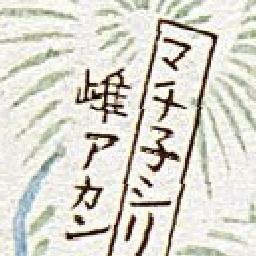 マチ子シリ
雌アカン